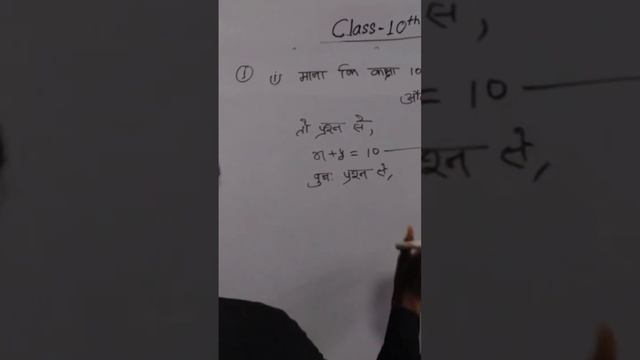 Class-10th
① (i) माना कि कक्षा 10
औ
तो प्रश्न से,
x+y = 10
पुनः प्रश्न से,